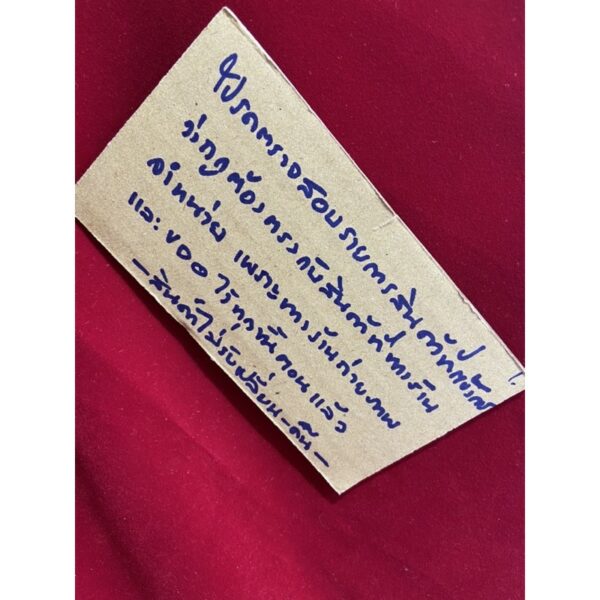 โปรดตรวจสอบรายการสินค้าทุกครั้ง
ว่าถูกต้องตรงกับสินค้าที่ทางร้าน
จำหน่าย เพราะทางร้านถ่ายภาพ
และ VDO ไว้ทุกขั้นตอนแล้ว
- สินค้าไม่รับเปลี่ยน-คืน -